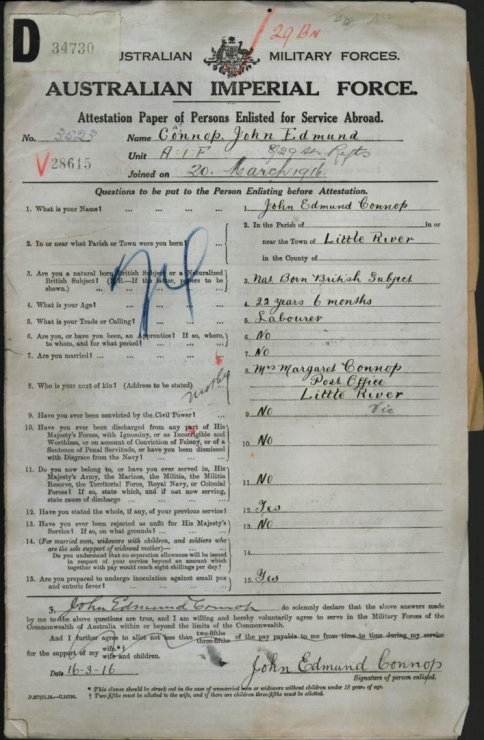 D 34730
29 BN
AUSTRALIAN MILITARY FORCES.
AUSTRALIAN IMPERIAL FORCE.
Attestation Paper of Persons Enlisted for Service Abroad.
No. 3523 Name Connop. John Edmund
V 28615 Unit A.I.F 8/29 Refts
Joined on 20. March 1916
Questions to be put to the Person Enlisting before Attestation.
1. What is your Name? ... ... ... 1. John Edmund Connop
2. In or near what Parish or Town were you born? 2. In the Parish of in or
near the Town of Little River
in the County of
3. Are you a natural born British Subject or a Naturalized
British Subject? (N.B.—If the latter, papers to be
shown.) 3. Nat Born British Subject
4. What is your Age? 4. 22 years 6 months
5. What is your Trade or Calling? 5. Labourer
6. Are you, or have you been, an Apprentice? If so, where,
to whom, and for what period? 6. No
7. Are you married? 7. No
8. Who is your next of kin? (Address to be stated) mother 8. Mrs Margaret Connop
Post Office
Little River
Vic
9. Have you ever been convicted by the Civil Power? 9. No
10. Have you ever been discharged from any part of His
Majesty's Forces, with Ignominy, or as Incorrigible and
Worthless, or on account of Conviction of Felony, or of a
Sentence of Penal Servitude, or have you been dismissed
with Disgrace from the Navy? 10. No
11. Do you now belong to, or have you ever served in, His
Majesty's Army, the Marines, the Militia, the Militia
Reserve, the Territorial Force, Royal Navy, or Colonial
Forces? If so, state which, and if not now serving,
state cause of discharge 11. No
12. Have you stated the whole, if any, of your previous service? 12. Yes
13. Have you ever been rejected as unfit for His Majesty's
Service? If so, on what grounds? 13. No
14. (For married men, widowers with children, and soldiers who
are the sole support of widowed mother)—
Do you understand that no separation allowance will be issued
in respect of your service beyond an amount which
together with pay would reach eight shillings per day? 14.
15. Are you prepared to undergo inoculation against small pox
and enteric fever? 15. Yes
I, John Edmund Connop do solemnly declare that the above answers made
by me to the above questions are true, and I am willing and hereby voluntarily agree to serve in the Military Forces of the
Commonwealth of Australia within or beyond the limits of the Commonwealth.
And I further agree to allot not less than two-fifths three-fifths of the pay payable to me from time to time during my service
for the support of my wife.* wife and children.
Date 16-3-16 John Edmund Connop
Signature of person enlisted.
* This clause should be struck out in the case of unmarried men or widowers without children under 18 years of age.
† Two fifths must be allotted to the wife, and if there are children three-fifths must be allotted.